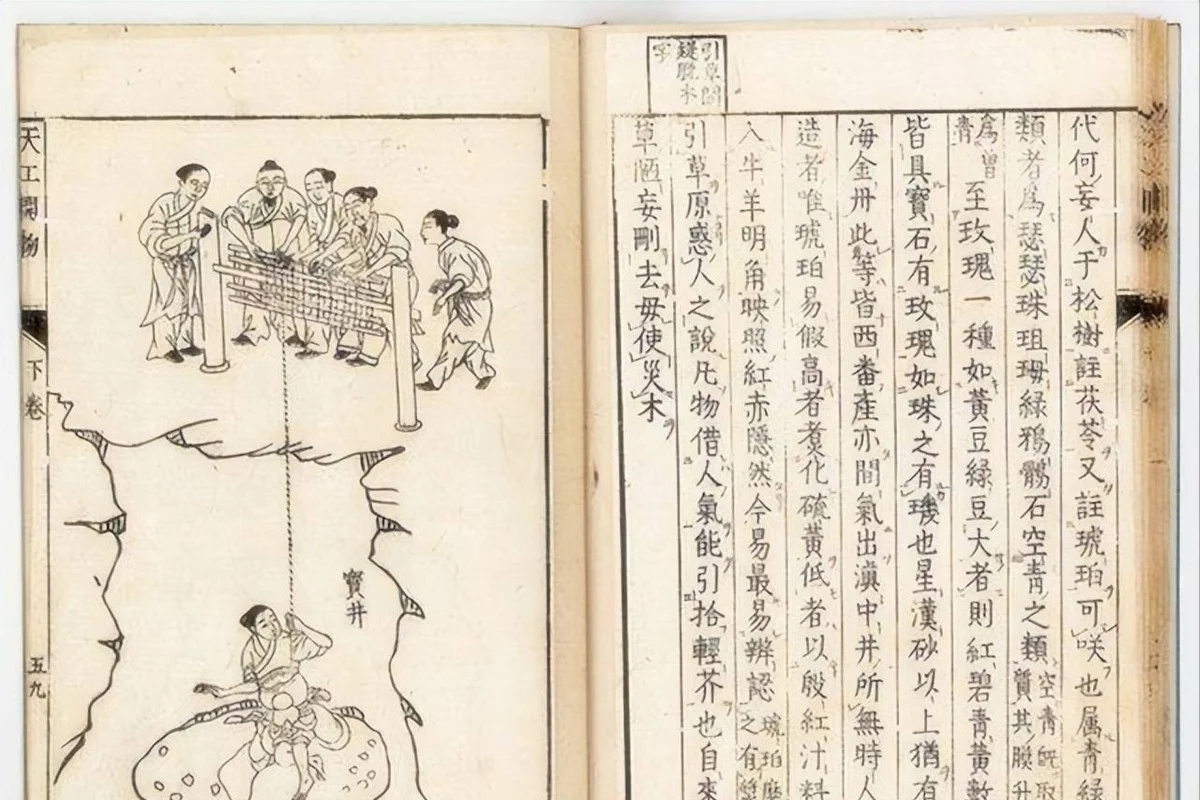 代何妄人于松樹註茯苓又註琥珀可咲也属青緑
類者為瑟瑟珠珇珻緑鴉鶻石空青之類空青既取
質其膜升
為曾
青
至玫瑰一種如黃豆緑豆大者則紅碧青黃數
皆具寶石有玫瑰如珠之有璣也星漢砂以上猶有
海金丹此等皆西番產亦間氣出滇中井所無時人
造者唯琥珀易假高者煑化硫黃低者以殷紅汁料
入牛羊明角映照紅赤隱然今易最易辨認琥珀磨
之有漿
引草原惑人之說凡物借人氣能引拾輕芥也自來
草陋妄刪去毋使災木
引草間
脫本
字
寶井
天工開物
下卷
五九